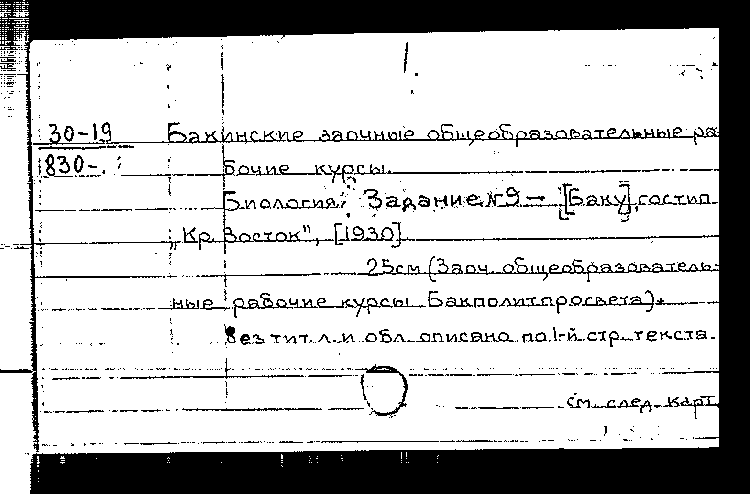 30-19 Бакинские заочные общеобразовательные ра
830- бочие курсы.
Биология. Задание №9 — [Баку], гостип.
„Кр. Восток", [1930]
25см (Заоч. общеобразователь-
ные рабочие курсы Бакполитпросвета).
Без тит. л. и обл. описано по 1-й стр. текста.
см. след. карт.